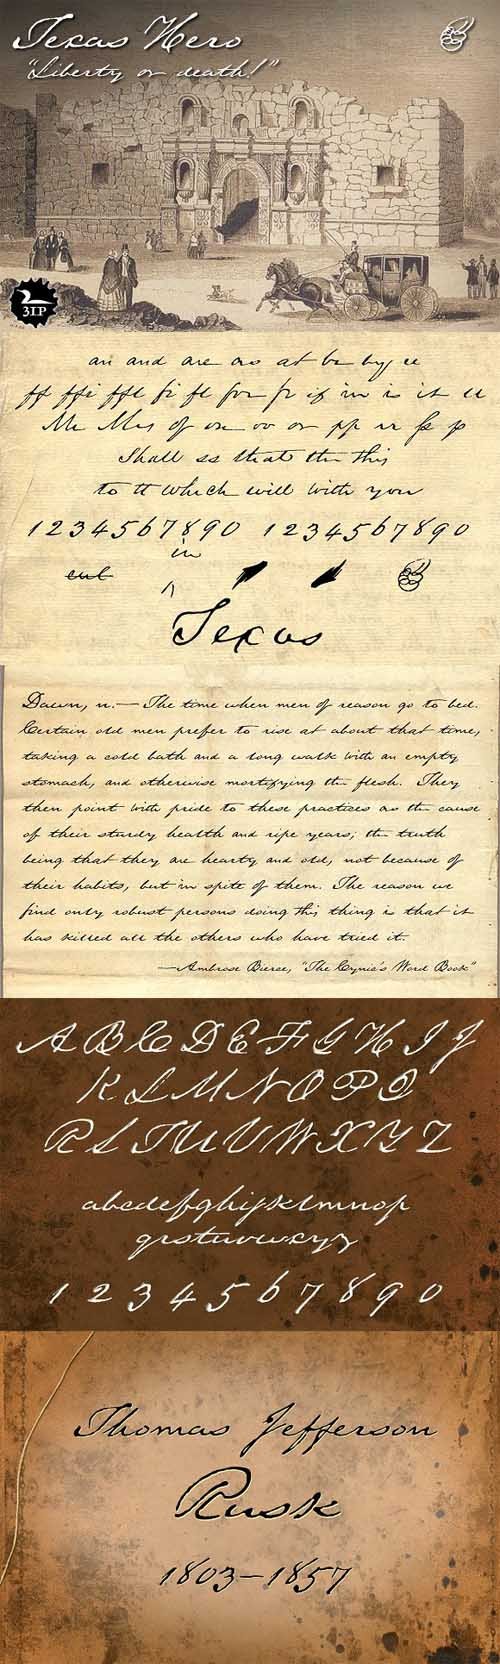 Texas Hero
"Liberty or death!"
3IP
an and are as at be by ee
ff ffi ffl fi fl for fr if in is it ll
Mr Mrs of on oo or pp rr ss p
Shall ss that the this
to tt which will with you
1234567890 1234567890
in
cut
Texas
Dawn, n.— The time when men of reason go to bed.
Certain old men prefer to rise at about that time,
taking a cold bath and a long walk with an empty
stomach, and otherwise mortifying the flesh. They
then point with pride to these practices as the cause
of their sturdy health and ripe years; the truth
being that they are hearty and old, not because of
their habits, but in spite of them. The reason we
find only robust persons doing this thing is that it
has killed all the others who have tried it.
—Ambrose Bierce, "The Cynic's Word Book"
ABCDEFGHIJ
KLMNOPQ
RSTUVWXYZ
abcdefghijklmnop
qrstuvwxyz
1 2 3 4 5 6 7 8 9 0
Thomas Jefferson
Rusk
1803–1857